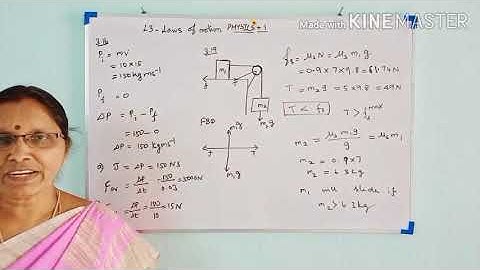 L3-Laws of motion PHYSICS +1
Made with KINEMASTER
3.18
Pi = mv
= 10×15
= 150 kg ms⁻¹
Pf = 0
ΔP = Pi - Pf
= 150-0
ΔP = 150 kg ms⁻¹
a) J = ΔP = 150 NS
Fav = ΔP/Δt = 150/0.03 = 5000N
= ΔP/Δt = 150/10 = 15N
3.19
m1
m2
m2g
FBD
m1g
fs = μsN = μs m1g
= 0.9×7×9.8 = 61.74N
T = m2g = 5×9.8 = 49N
T < fs
T > fs max
m2 = μs m1g/g = μs m1
m2 = 0.9×7
m2 = 6.3kg
m1 will slide if
m2 > 6.3kg